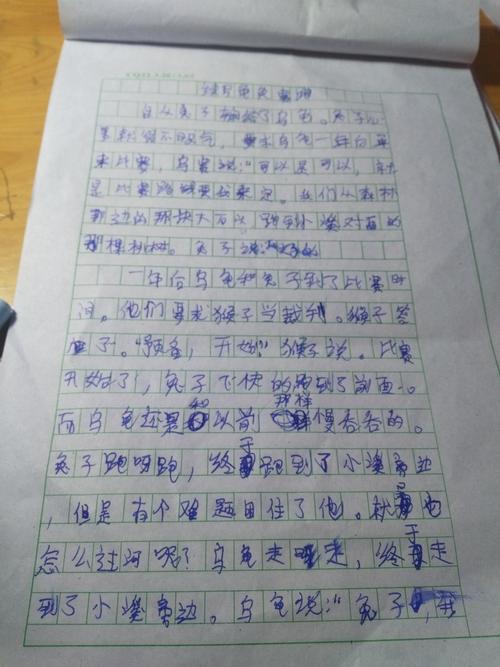 续写龟兔赛跑
自从兔子输给了乌龟。兔子心
里就很不服气，要求乌龟一年后再
来比赛，乌龟说："可以是可以，
是比赛路线要我来定。我们从森林
那边的那块大石头跑到小溪对面的
那棵桃树。兔子说:好的
一年后乌龟和兔子到了比赛时
间。他们要求猴子当裁判。猴子答
应了。"预备，开始!"猴子说。比赛
开始了，兔子飞快的跑到了前面。
而乌龟还是和以前那样慢吞吞的。
兔子跑呀跑，终于跑到了小溪旁边
，但是有个难题困住了他。他
怎么过河呢？乌龟走呀走，终于走
到了小溪旁边。乌龟说："兔子，我